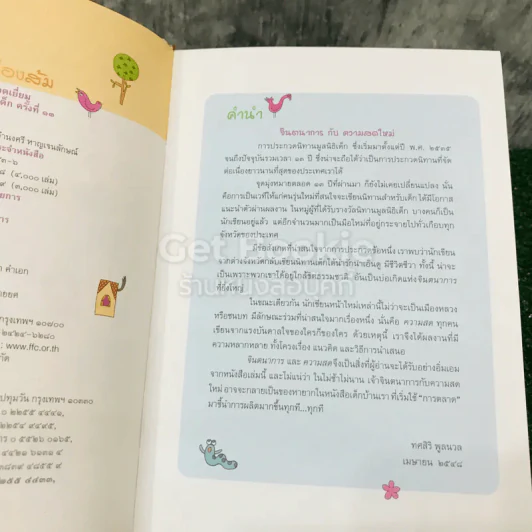 องส้ม
ดเยี่ยม
ด็ก ครั้งที่ ๑๑
หาญเจนลักษณ์
(๔,๐๐๐ เล่ม)
(๓,๐๐๐ เล่ม)
คำเอก
กรุงเทพฯ ๑๐๗๐๐
www.ffc.or.th
ปทุมวัน กรุงเทพฯ ๑๐๓๓๐
คำนำ
จินตนาการ กับ ความสดใหม่
การประกวดนิทานมูลนิธิเด็ก ซึ่งเริ่มมาตั้งแต่ปี พ.ศ. ๒๕๓๕
จนถึงปัจจุบันรวมเวลา ๑๓ ปี ซึ่งน่าจะถือได้ว่าเป็นการประกวดนิทานที่จัด
ต่อเนื่องยาวนานที่สุดของประเทศเราได้
จุดมุ่งหมายตลอด ๑๓ ปีที่ผ่านมา ก็ยังไม่เคยเปลี่ยนแปลง นั่น
คือการเป็นเวทีให้แก่คนรุ่นใหม่ที่สนใจจะเขียนนิทานสำหรับเด็ก ได้มีโอกาส
แนะนำตัวผ่านผลงาน ในหมู่ผู้ที่ได้รับรางวัลนิทานมูลนิธิเด็ก บางคนก็เป็น
นักเขียนอยู่แล้ว แต่อีกจำนวนมากเป็นมือใหม่ที่อยู่กระจายไปทั่วเกือบทุก
จังหวัดของประเทศ
มีข้อสังเกตที่น่าสนใจจากการประกวดข้อหนึ่ง เราพบว่านักเขียน
จากต่างจังหวัดกลับเขียนนิทานเด็กได้น่ารักน่าเอ็นดู มีชีวิตชีวา ทั้งนี้ น่าจะ
เป็นเพราะพวกเขาได้อยู่ใกล้ชิดธรรมชาติ อันเป็นบ่อเกิดแห่งจินตนาการ
ที่ยิ่งใหญ่
ในขณะเดียวกัน นักเขียนหน้าใหม่เหล่านี้ไม่ว่าจะเป็นเมืองหลวง
หรือชนบท มีลักษณะร่วมที่น่าสนใจมากเรื่องหนึ่ง นั่นคือ ความสด ทุกคน
เขียนจากแรงบันดาลใจของใครก็ของใคร ด้วยเหตุนี้ เราจึงได้ผลงานที่มี
ความหลากหลาย ทั้งโครงเรื่อง แนวคิด และวิธีการนำเสนอ
จินตนาการ และ ความสดจึงเป็นสิ่งที่ผู้อ่านจะได้รับอย่างอิ่มเอม
จากหนังสือเล่มนี้ และไม่แน่ว่า ในไม่ช้าไม่นาน เจ้าจินตนาการกับความสด
ใหม่ อาจจะกลายเป็นของหายากในหนังสือเด็กบ้านเรา ที่เริ่มใช้ "การตลาด"
มาชี้นำการผลิตมากขึ้นทุกที...ทุกที
ทศสิริ พูลนวล
เมษายน ๒๕๔๘
ร้านหนังสือบุ๊คกี้